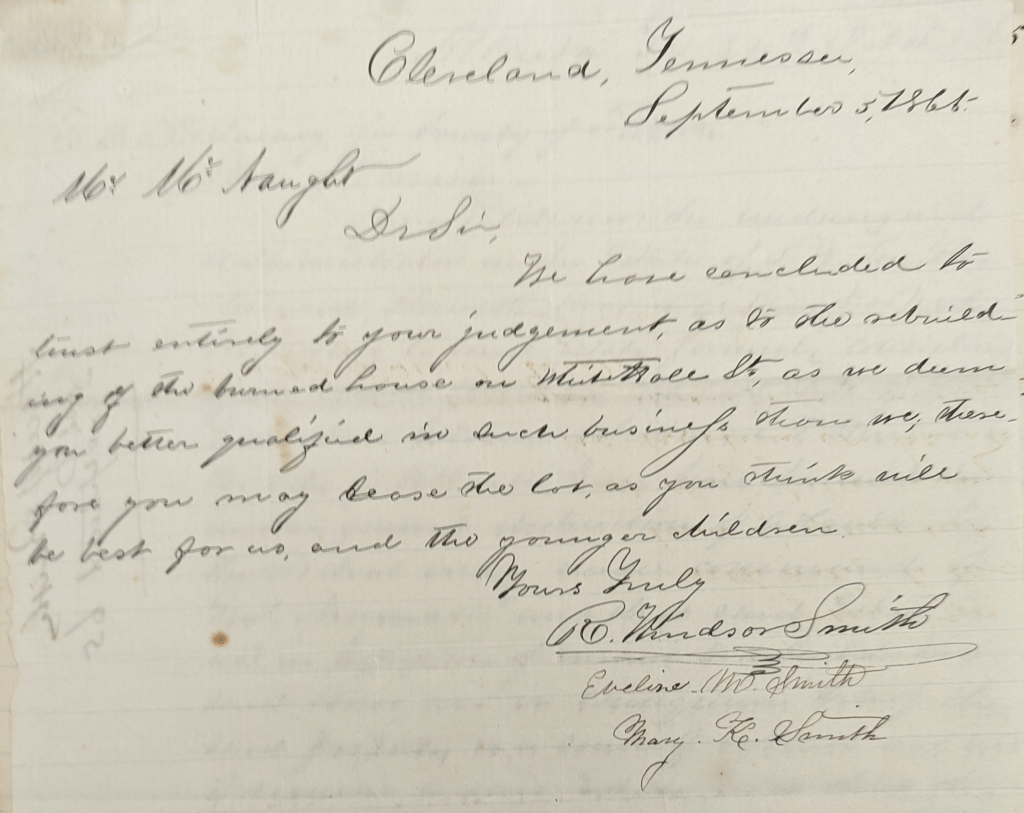 Cleveland, Tennessee,
September 5, 1865.
Mr Mc Naught
Dr Sir,
We have concluded to
trust entirely to your judgement, as to the rebuild-
ing of the burned house on Whitehall St, as we deem
you better qualified in such business than we; there-
fore you may lease the lot, as you think will
be best for us, and the younger children.
Yours Truly
R. Windsor Smith
Eveline M. Smith
Mary K. Smith